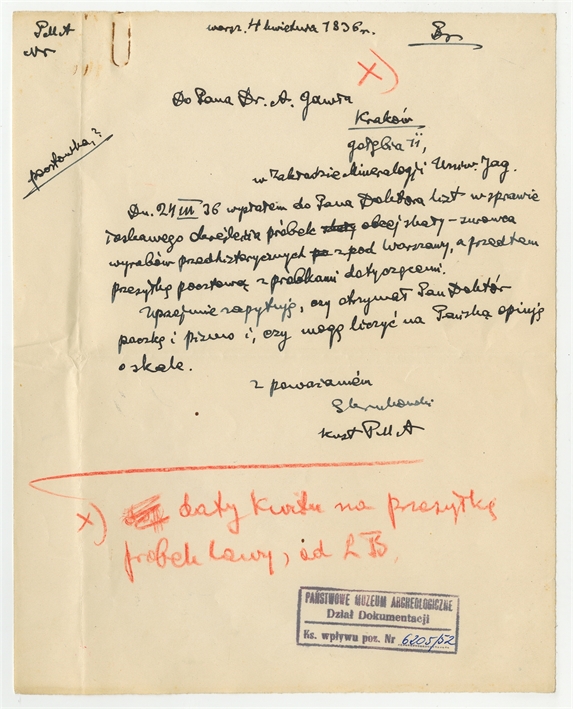 P.M.A
Nr
warsz. 4 kwietnia 1936 r.
x)
Do Pana Dr. A. Gawła
Kraków
gołębia 11,
w Zakładzie Mineralogji Uniw. Jag.
pocztówka?
Dn. 24 III 36 wysłałem do Pana Doktora list w sprawie
łaskawego określenia próbek obcej skały – surowca
wyrobów przedhistorycznych z pod Warszawy, a przedtem
przesyłkę pocztową z próbkami dotyczącemi.
Uprzejmie zapytuję, czy otrzymał Pan Doktór
paczkę i pismo i, czy mogę liczyć na Pańską opinję
o skale.
z poważaniem
Kust P.M.A
x) daty kwitu na przesyłkę
próbek lawy, od L B.
PAŃSTWOWE MUZEUM ARCHEOLOGICZNE
Dział Dokumentacji
Ks. wpływu poz. Nr 6205/52